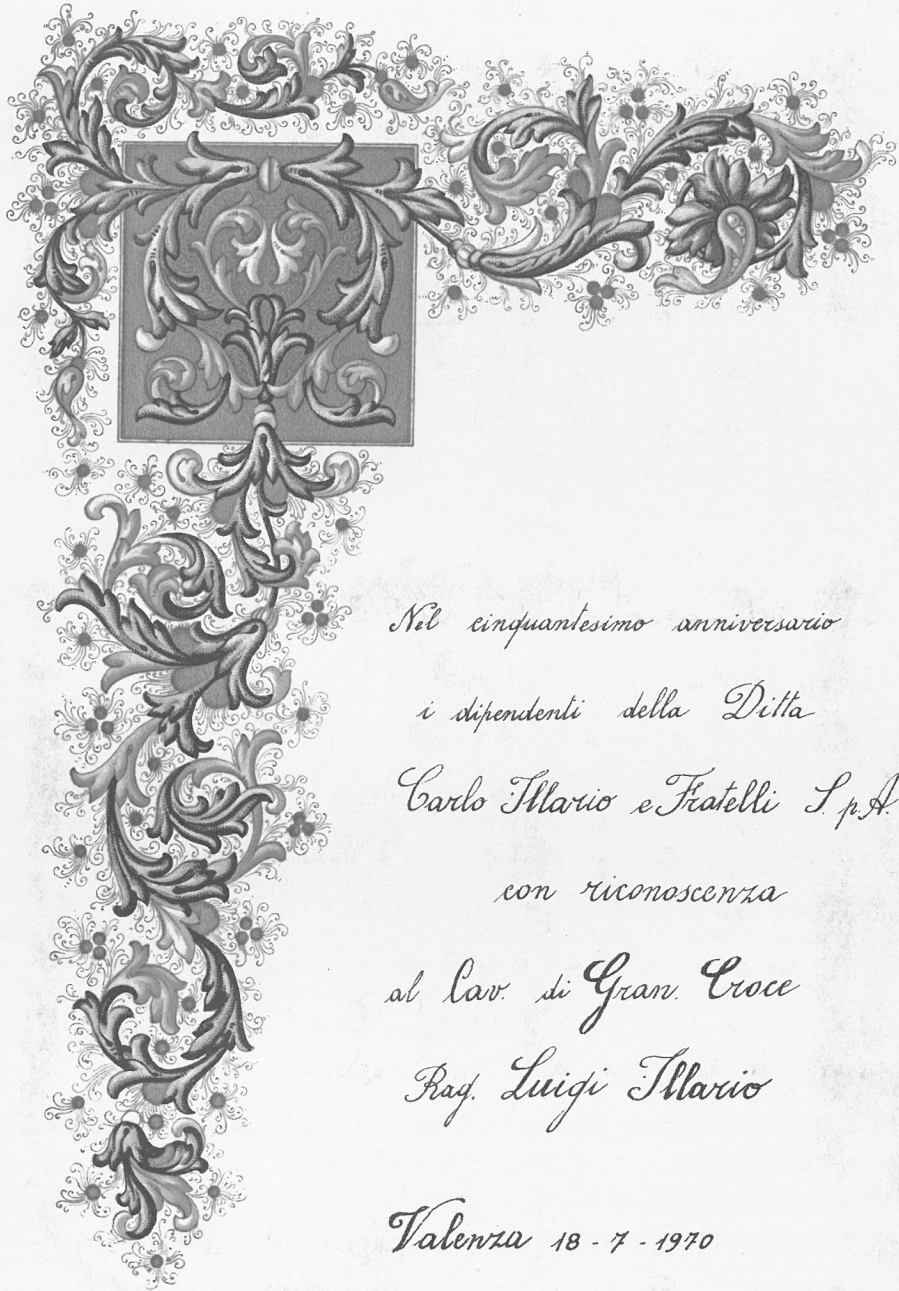 Nel cinquantesimo anniversario
i dipendenti della Ditta
Carlo Illario e Fratelli S.p.A.
con riconoscenza
al Cav. di Gran. Croce
Rag. Luigi Illario
Valenza 18 - 7 - 1970